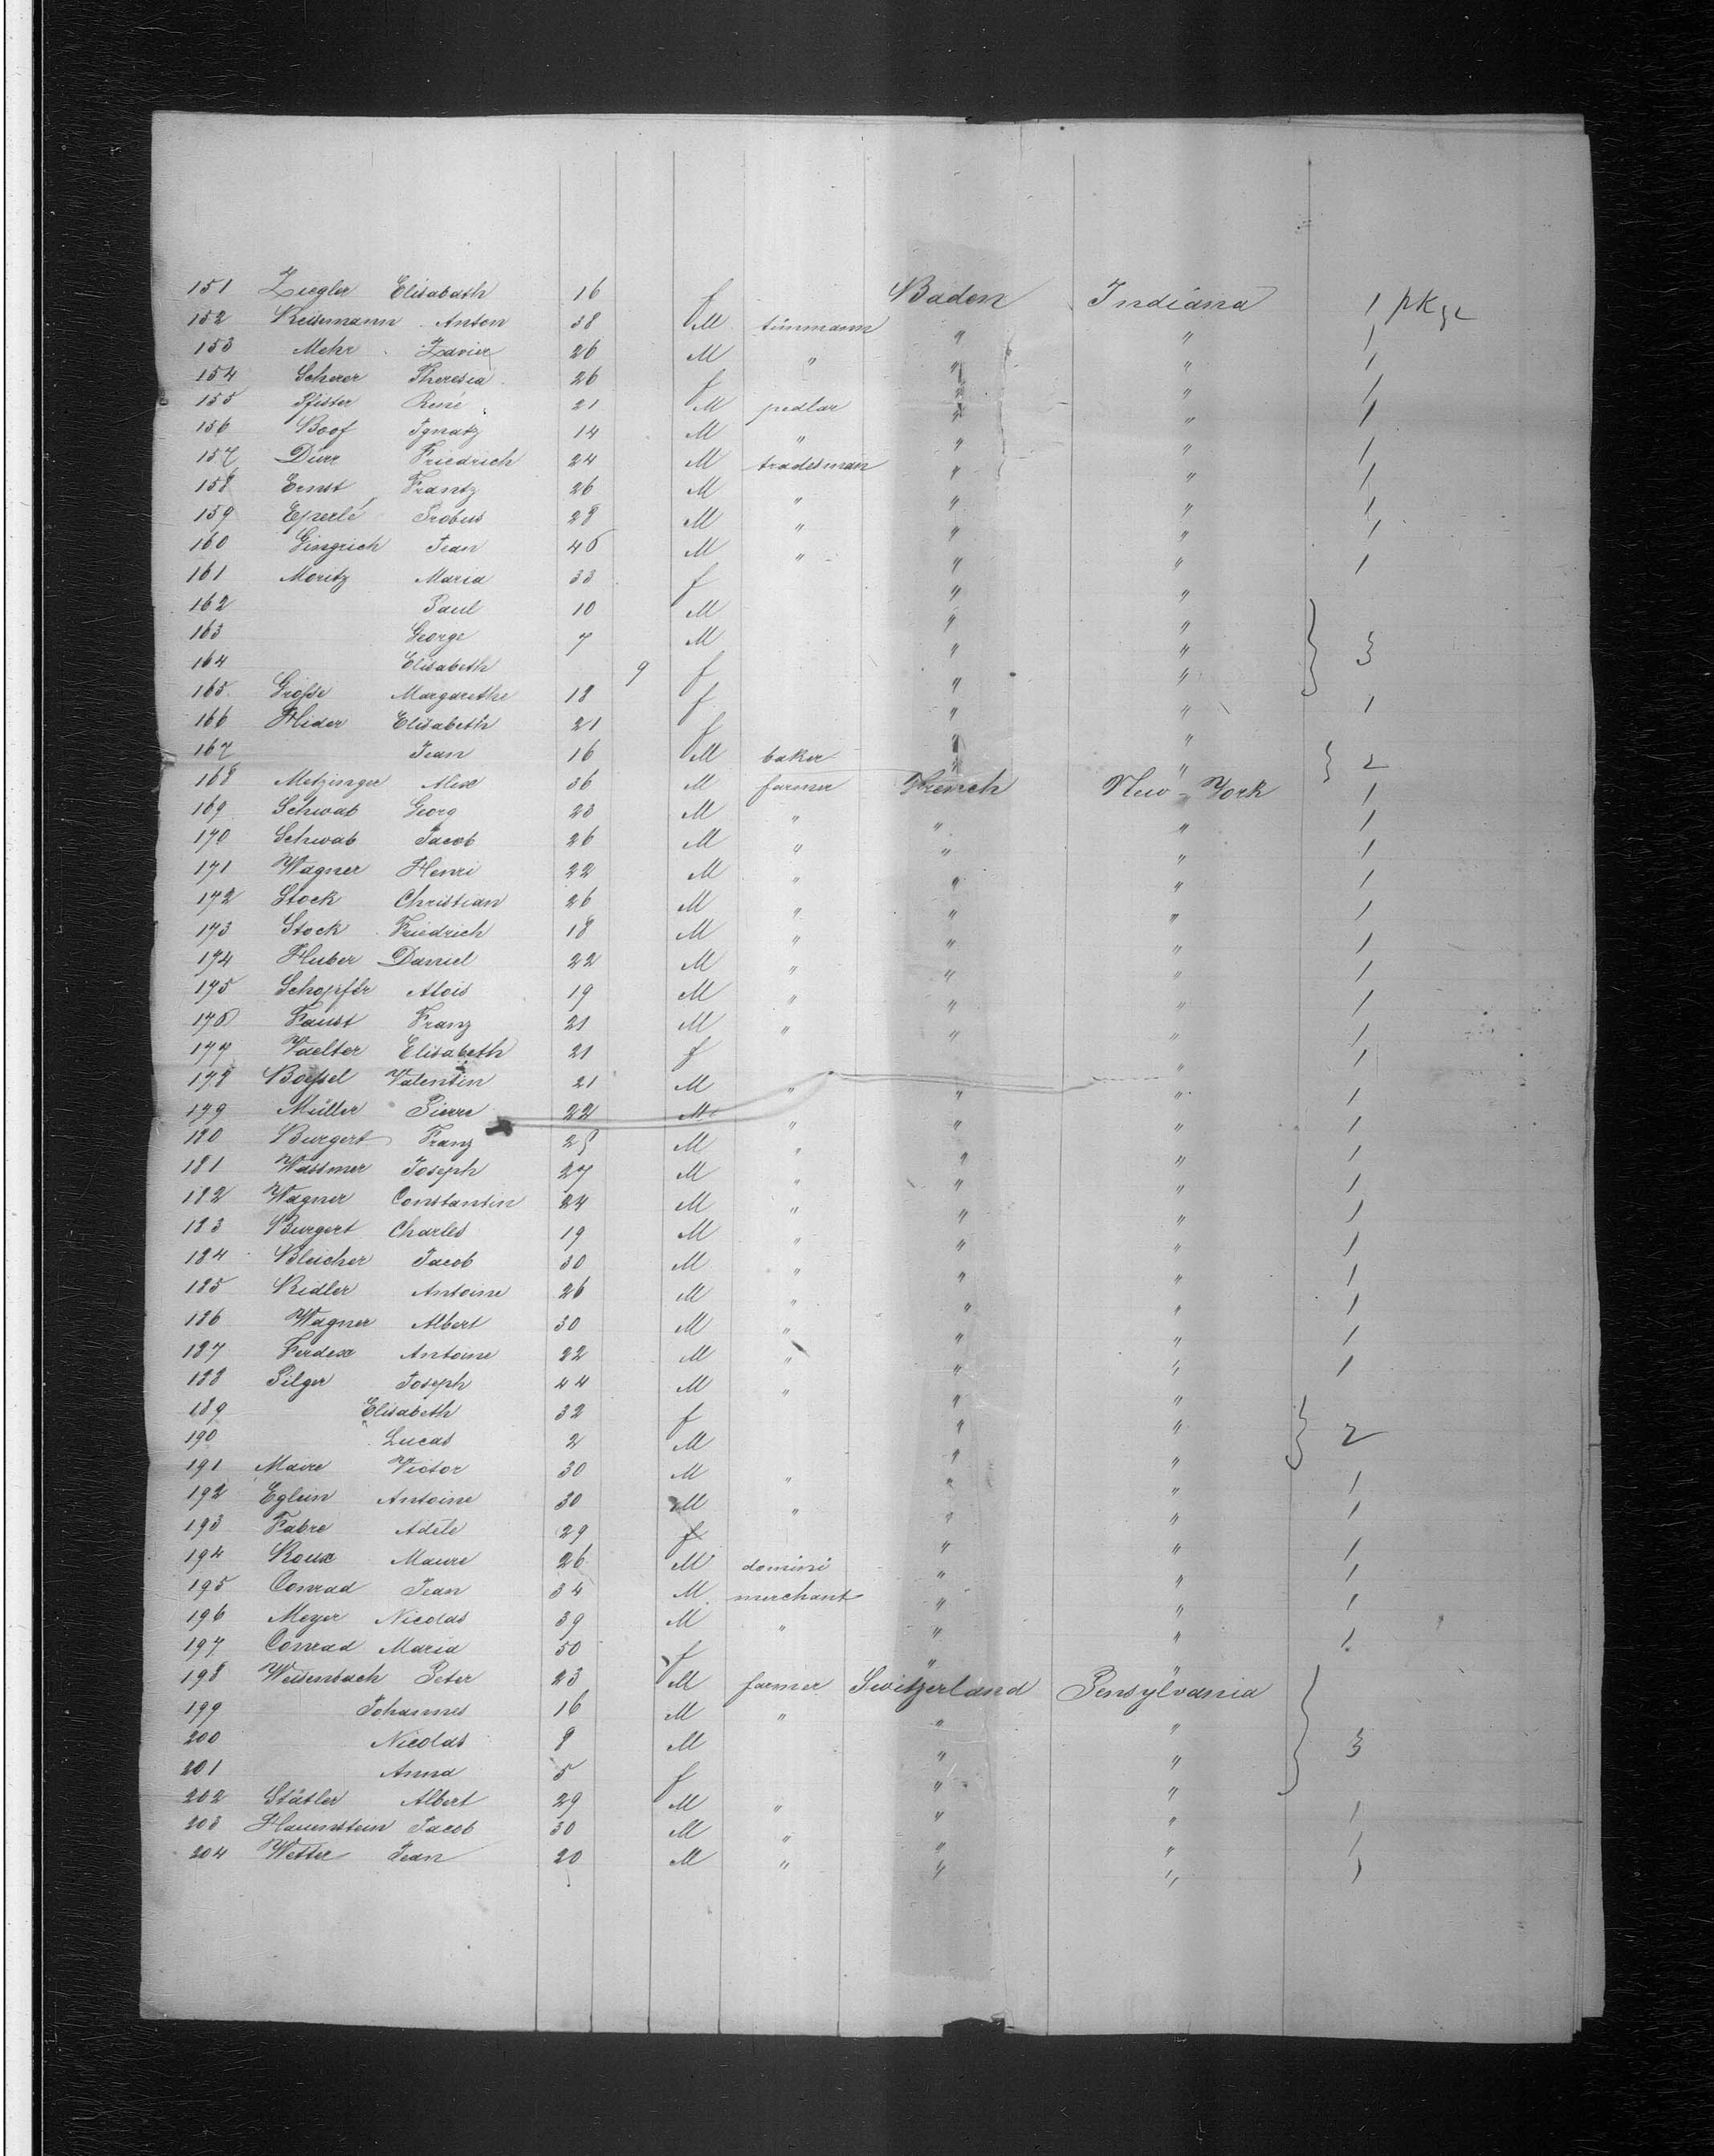 151 Ziegler Elisabath 16 f Baden Indiana 1 pkge
152 Reisemann Anton 38 M tinnmann " " 1
153 Mehr Xavier 26 M " " " 1
154 Scherer Theresia 26 f " " 1
155 Pfister René 21 M pedlar " " 1
156 Boof Ignatz 14 M " " " 1
157 Dürr Friedrich 24 M tradesman " " 1
158 Ernst Frantz 26 M " " " 1
159 Eperlé Probus 28 M " " " 1
160 Gingrich Jean 46 M " " " 1
161 Moritz Maria 33 f " "
162 Paul 10 M " "
163 George 7 M " " 3
164 Elisabeth 9 f " "
165 Grosse Margarethe 18 f " " 1
166 Hider Elisabeth 21 f " "
167 Jean 16 M baker " " 2
168 Metzinger Alex 36 M farmer French New-York 1
169 Schwab Georg 23 M " " " 1
170 Schwab Jacob 26 M " " " 1
171 Wagner Henri 22 M " " " 1
172 Stock Christian 26 M " " " 1
173 Stock Friedrich 18 M " " " 1
174 Huber Daniel 22 M " " " 1
175 Schopfer Alois 19 M " " " 1
176 Faust Franz 21 M " " " 1
177 Vaelter Elisabeth 21 f " 1
178 Boessel Valentin 21 M " " " 1
179 Müller Pierre 22 M " " " 1
180 Burgert Franz 25 M " " " 1
181 Wassmer Joseph 27 M " " " 1
182 Wagner Constantin 24 M " " " 1
183 Burgert Charles 19 M " " " 1
184 Bleicher Jacob 30 M " " " 1
185 Ridler Antoine 26 M " " " 1
186 Wagner Albert 30 M " " " 1
187 Ferdex Antoine 22 M " " " 1
188 Pilger Joseph 44 M " " "
189 Elisabeth 32 f " " 2
190 Lucas 2 M " "
191 Maire Victor 30 M " " " 1
192 Eglein Antoine 30 M " " " 1
193 Fabre Adèle 29 f " " 1
194 Roux Maure 26 M domini " " 1
195 Conrad Jean 34 M merchant " " 1
196 Meyer Nicolas 39 M " " " 1
197 Conrad Maria 50 f " "
198 Weisenbach Peter 23 M farmer Switzerland Pensylvania
199 Johannes 16 M " " "
200 Nicolas 8 M " " 3
201 Anna 5 f " "
202 Stätler Albert 29 M " " " 1
203 Hauenstein Jacob 30 M " " " 1
204 Wetter Jean 20 M " " " 1